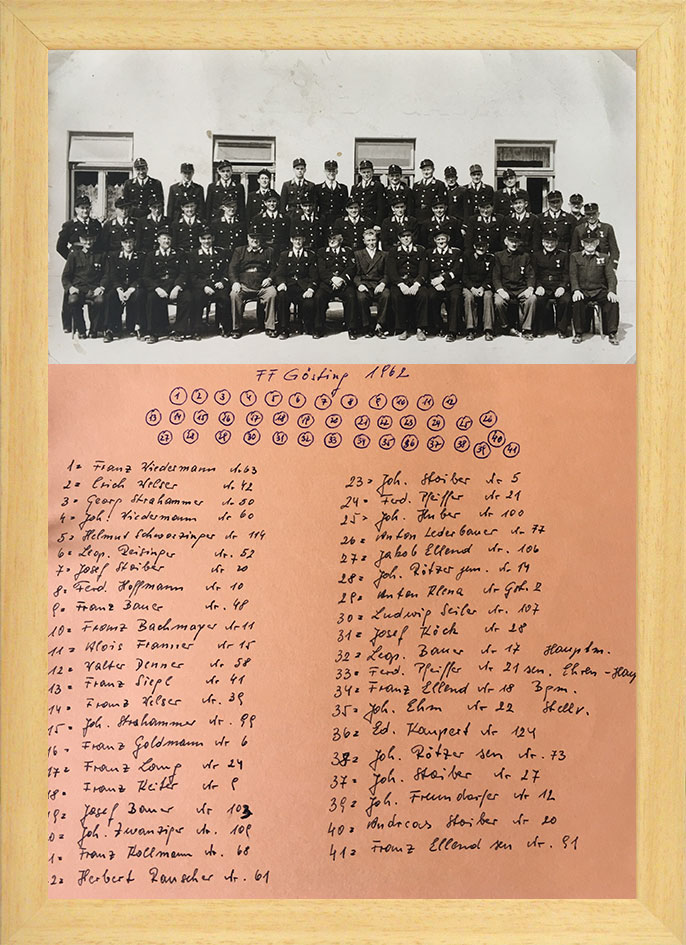 FF Gösting 1962
1 2 3 4 5 6 7 8 9 10 11 12
13 14 15 16 17 18 19 20 21 22 23 24 25 26
27 28 29 30 31 32 33 34 35 36 37 38 39 40 41
1= Franz Wiedermann Nr. 63
2= Erich Welser Nr. 42
3= Georg Strahammer Nr. 50
4= Joh. Wiedermann Nr. 60
5= Helmut Schwarzinger Nr. 114
6= Leop. Reisinger Nr. 52
7= Josef Stoiber Nr. 20
8= Ferd. Hoffmann Nr. 10
9= Franz Bauer Nr. 48
10= Franz Bachmayer Nr 11
11= Alois Franner Nr 15
12= Walter Denner Nr. 58
13= Franz Siegl Nr. 41
14= Franz Welser Nr. 39
15= Joh. Strahammer Nr. 99
16= Franz Goldmann Nr. 6
17= Franz Lang Nr. 24
18= Franz Reiter Nr. 9
19= Josef Bauer Nr 103
0= Joh. Zwanziger Nr. 109
1= Franz Kollmann Nr. 68
2= Herbert Rauscher Nr. 61
23= Joh. Stoiber Nr 5
24= Ferd. Pfeiffer Nr 21
25= Joh. Huber Nr 100
26= Anton Lederbauer Nr. 77
27= Jakob Ellend Nr. 106
28= Joh. Rötzer jun. Nr 14
29= Anton Klena Nr 2
30= Ludwig Seiler Nr. 107
31= Josef Köck Nr 28
32= Leop. Bauer Nr 17 Hauptm.
33= Ferd. Pfeiffer Nr 21 sen. Ehren-Hau
34= Franz Ellend Nr 18 Bgm.
35= Joh. Ehm Nr 22 Stellv.
36= Ed. Kaupert Nr 124
38= Joh. Rötzer sen Nr. 73
37= Joh. Stoiber Nr 27
39= Joh. Freundorfer Nr 12
40= Andreas Stoiber Nr 20
41= Franz Ellend sen Nr. 91